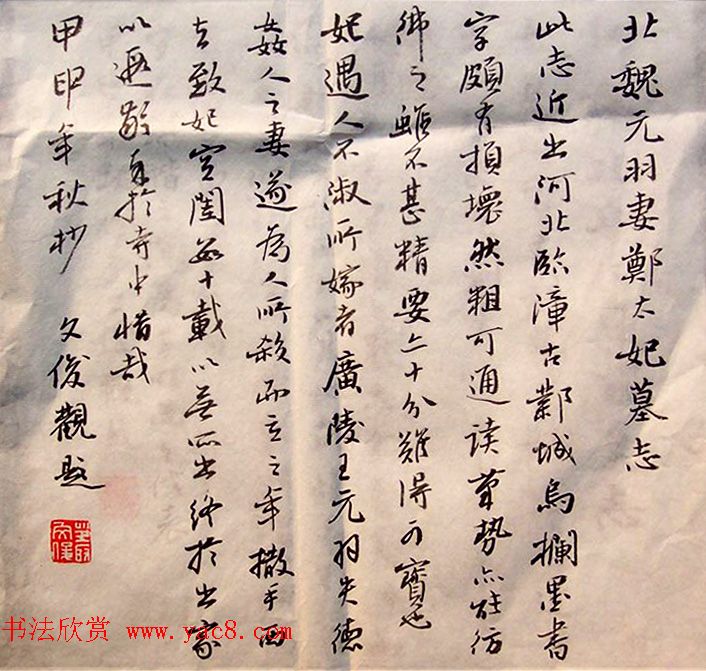 北魏元羽妻鄭太妃墓志
此志近出河北臨漳古鄴城烏攔墨書
字頗有損壞然粗可通读筆勢亦能彷
彿之雖不甚精要亦十分難得可寶也
妃遇人不淑所嫁者廣陵王元羽失德
姦人之妻遂為人所殺而立之年撒手西
去致妃空閨数十載以無所出終於出家
以遯於寺中惜哉
甲申年秋杪 文俊觀題
书法欣赏 www.yac8.com